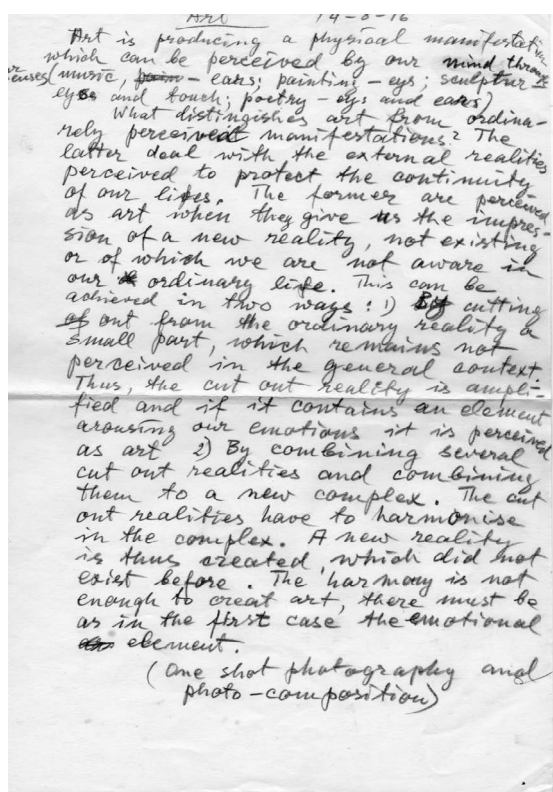 Art 14-8-16
Art is producing a physical manifestation
which can be perceived by our mind through
our senses (music, - ears; painting - eys; sculptur -
eyes and touch; poetry - eys and ears)
What distingishes art from ordina-
rely perceived manifestations? The
latter deal with the external realities
perceived to protect the continuity
of our lifes. The former are perceived
as art when they give us the impres-
sion of a new reality, not existing
or of which we are not aware in
our ordinary life. This can be
achieved in two ways: 1) By cutting
out from the ordinary reality a
small part, which remains not
perceived in the general context.
Thus, the cut out reality is ampli-
fied and if it contains an element
arousing our emotions it is perceived
as art 2) By combining several
cut out realities and combining
them to a new complex. The cut
out realities have to harmonise
in the complex. A new reality
is thus created, which did not
exist before. The harmony is not
enough to creat art, there must be
as in the first case the emotional
element.
(One shot photography and
photo-composition)